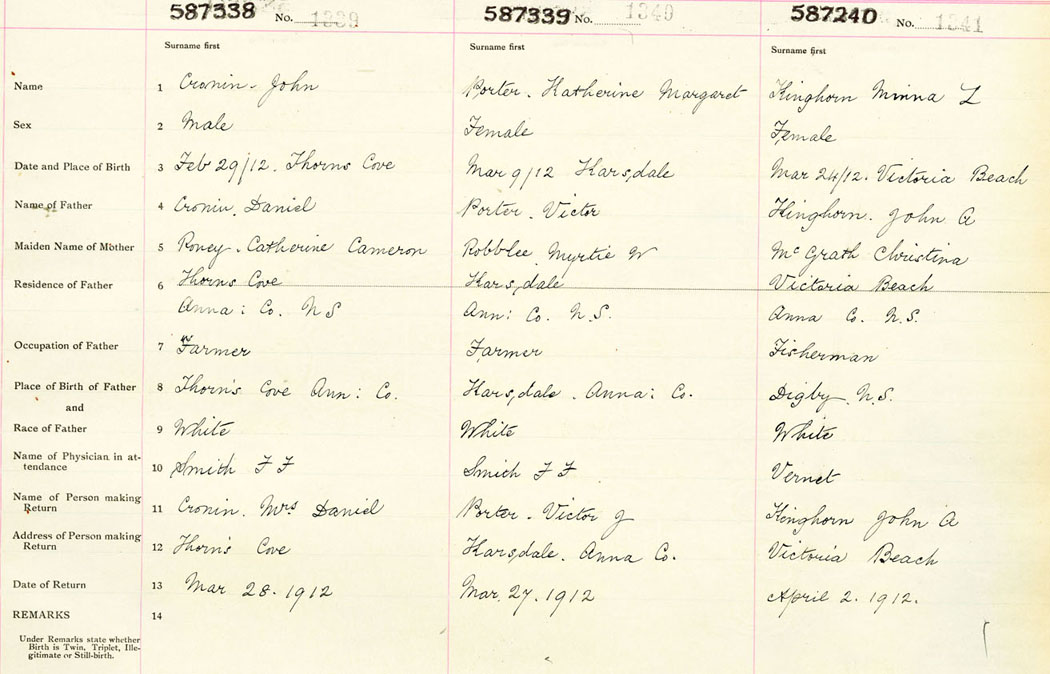 587338 No. 1339 587339 No. 1340 587240 No. 1341
Surname first Surname first Surname first
Name 1 Cronin. John Porter. Katherine Margaret Kinghorn Minna L
Sex 2 Male Female Female
Date and Place of Birth 3 Feb 29/12. Thorns Cove Mar 9/12 Karsdale Mar 24/12. Victoria Beach
Name of Father 4 Cronin. Daniel Porter. Victor Kinghorn. John A
Maiden Name of Mother 5 Catherine Cameron Robblee Myrtie W McGrath Christina
Residence of Father 6 Thorns Cove Karsdale Victoria Beach
Anna: Co. N S Ann: Co. N.S. Anna Co. N.S.
Occupation of Father 7 Farmer Farmer Fisherman
Place of Birth of Father 8 Thorn's Cove Ann: Co. Karsdale. Anna: Co. Digby N.S.
and
Race of Father 9 White White White
Name of Physician in at-
tendance 10 Smith F F Smith F F Vernet
Name of Person making
Return 11 Cronin. Mrs Daniel Porter. Victor J Kinghorn John A
Address of Person making
Return 12 Thorn's Cove Karsdale. Anna Co. Victoria Beach
Date of Return 13 Mar 28. 1912 Mar. 27. 1912 April 2. 1912.
REMARKS 14
Under Remarks state whether
Birth is Twin, Triplet, Ille-
gitimate or Still-birth.